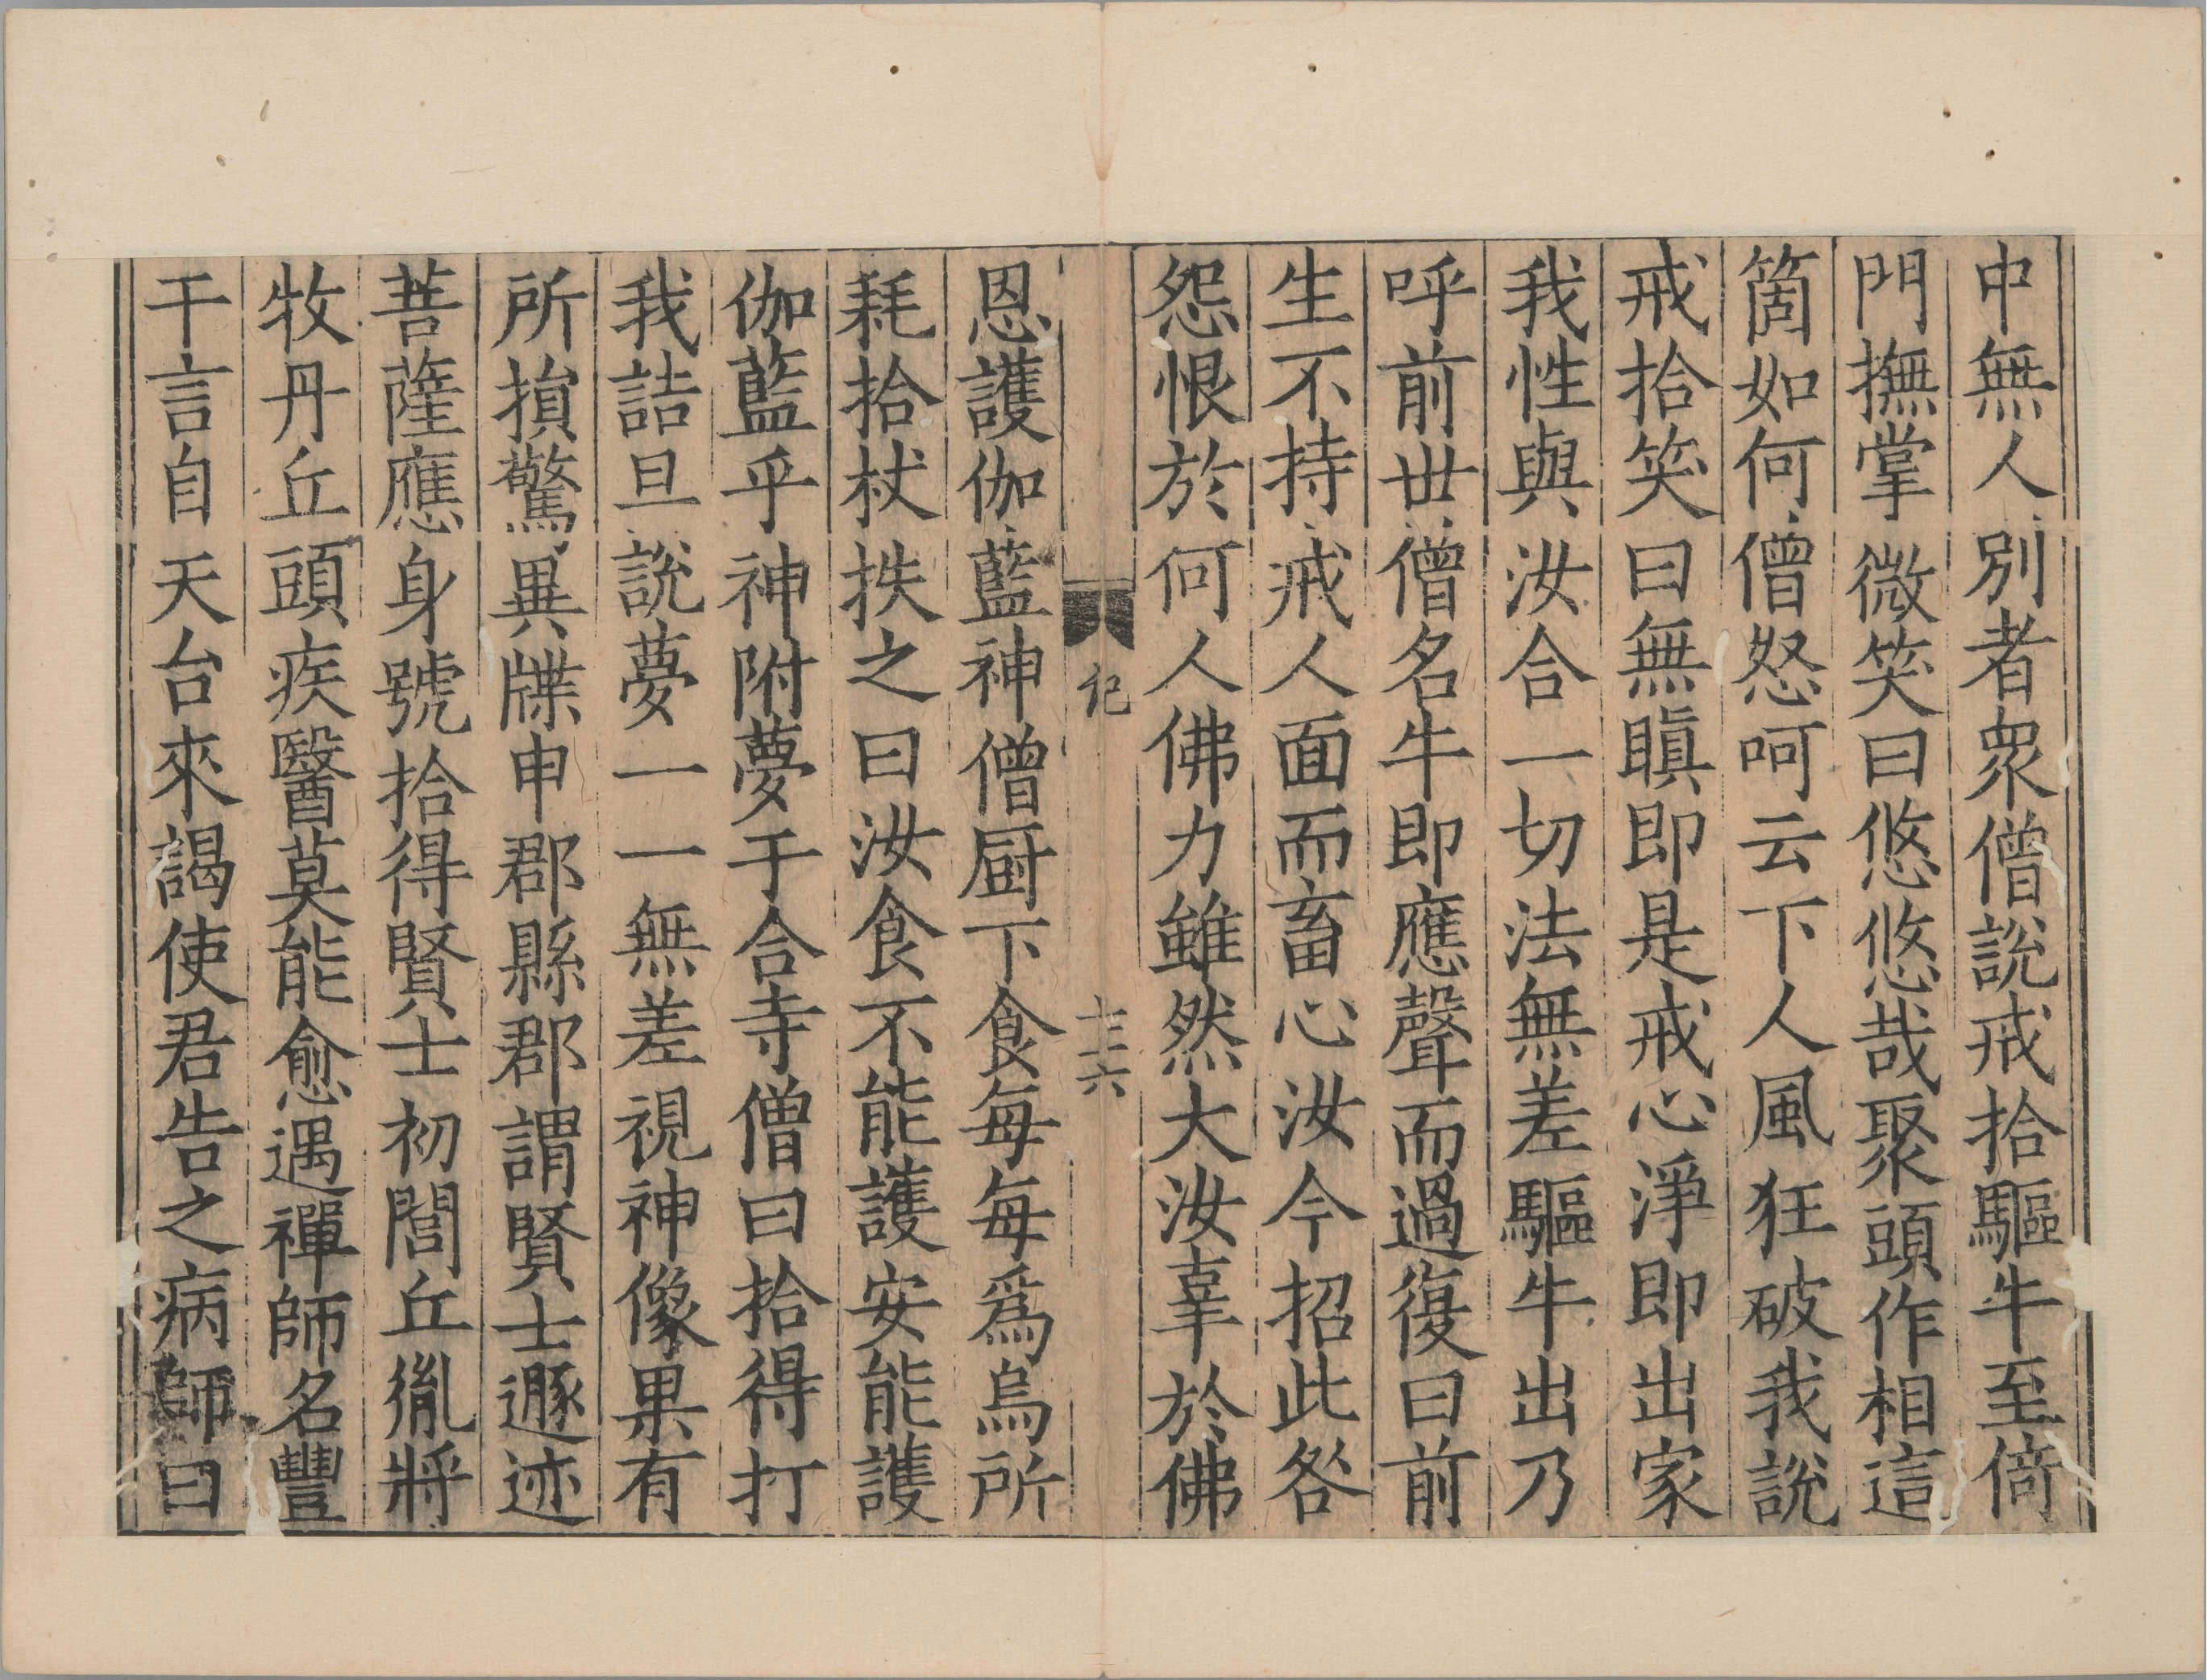 中無人別者眾僧說戒拾驅牛至倚
門撫掌微笑曰悠悠哉聚頭作相這
箇如何僧怒呵云下人風狂破我說
戒拾笑曰無瞋即是戒心淨即出家
我性與汝合一切法無差驅牛出乃
呼前世僧名牛即應聲而過復曰前
生不持戒人面而畜心汝今招此咎
怨恨於何人佛力雖然大汝辜於佛
記
十六
恩護伽藍神僧厨下食每每爲烏所
耗拾杖抶之曰汝食不能護安能護
伽藍乎神附夢于合寺僧曰拾得打
我詰旦說夢一一無差視神像果有
所損驚異牒申郡縣郡謂賢士遯迹
菩薩應身號拾得賢士初閭丘胤將
牧丹丘頭疾醫莫能愈遇禪師名豐
干言自天台來謁使君告之病師曰